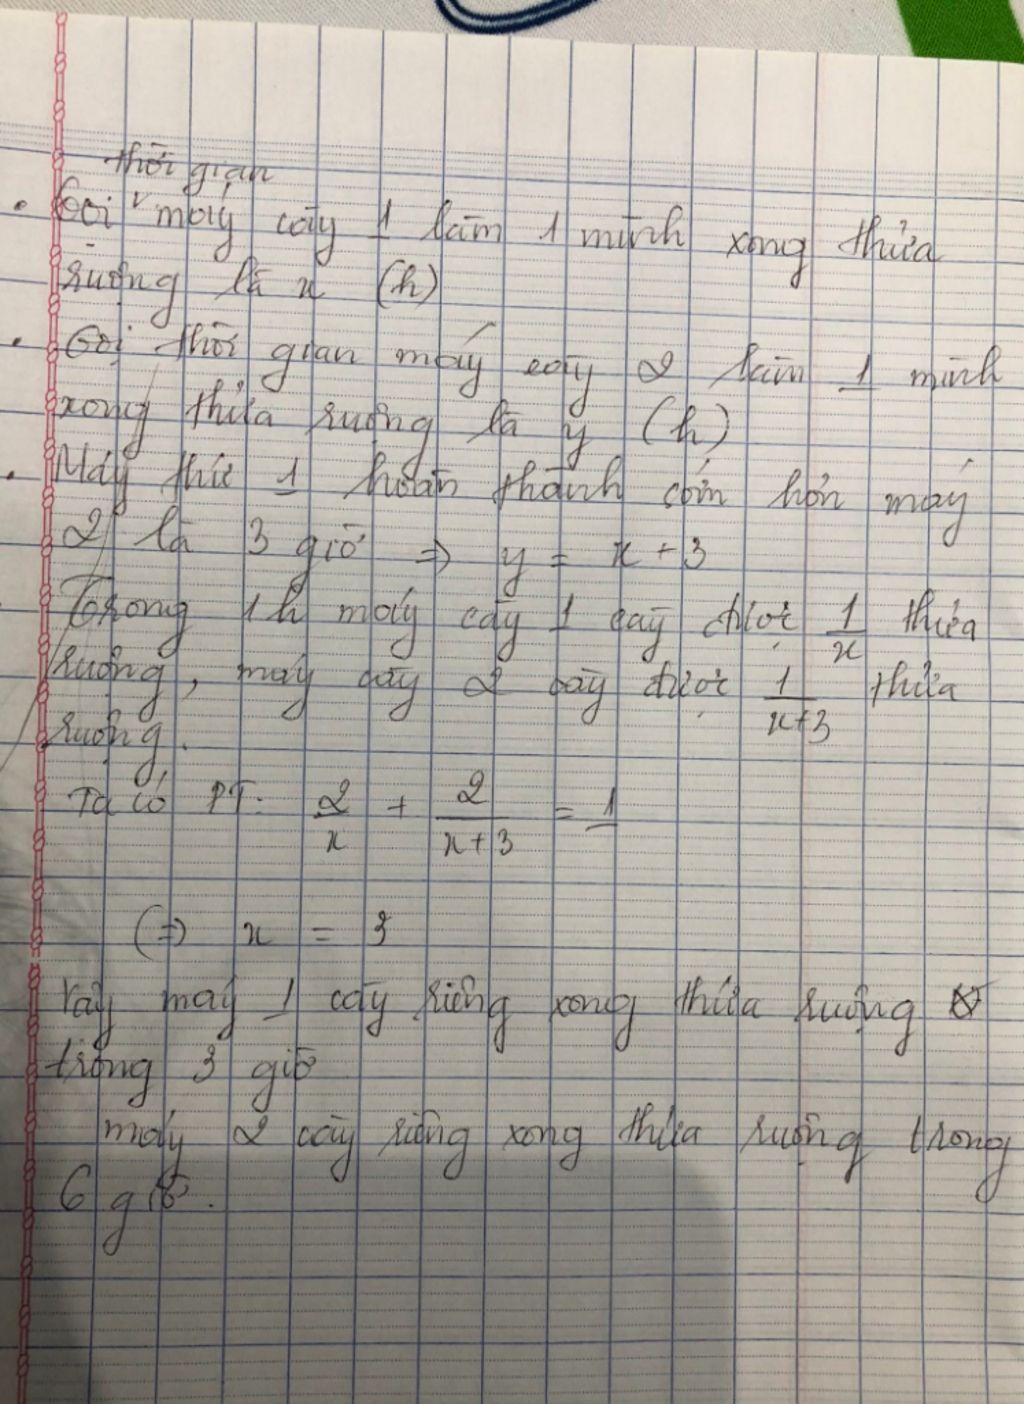 thời gian
Gọi ˅ máy cày 1 làm 1 mình xong thửa
ruộng là x (h)
Gọi thời gian máy cày 2 làm 1 mình
xong thửa ruộng là y (h)
Máy thứ 1 hoàn thành sớm hơn máy
2 là 3 giờ => y = x + 3
Trong 1h máy cày 1 cày được 1/x thửa
ruộng, máy cày 2 cày được 1/(x+3) thửa
ruộng.
Ta có PT: 2/x + 2/(x+3) = 1
(=> x = 3
Vậy máy 1 cày riêng xong thửa ruộng
trong 3 giờ
máy 2 cày riêng xong thửa ruộng trong
6 giờ.